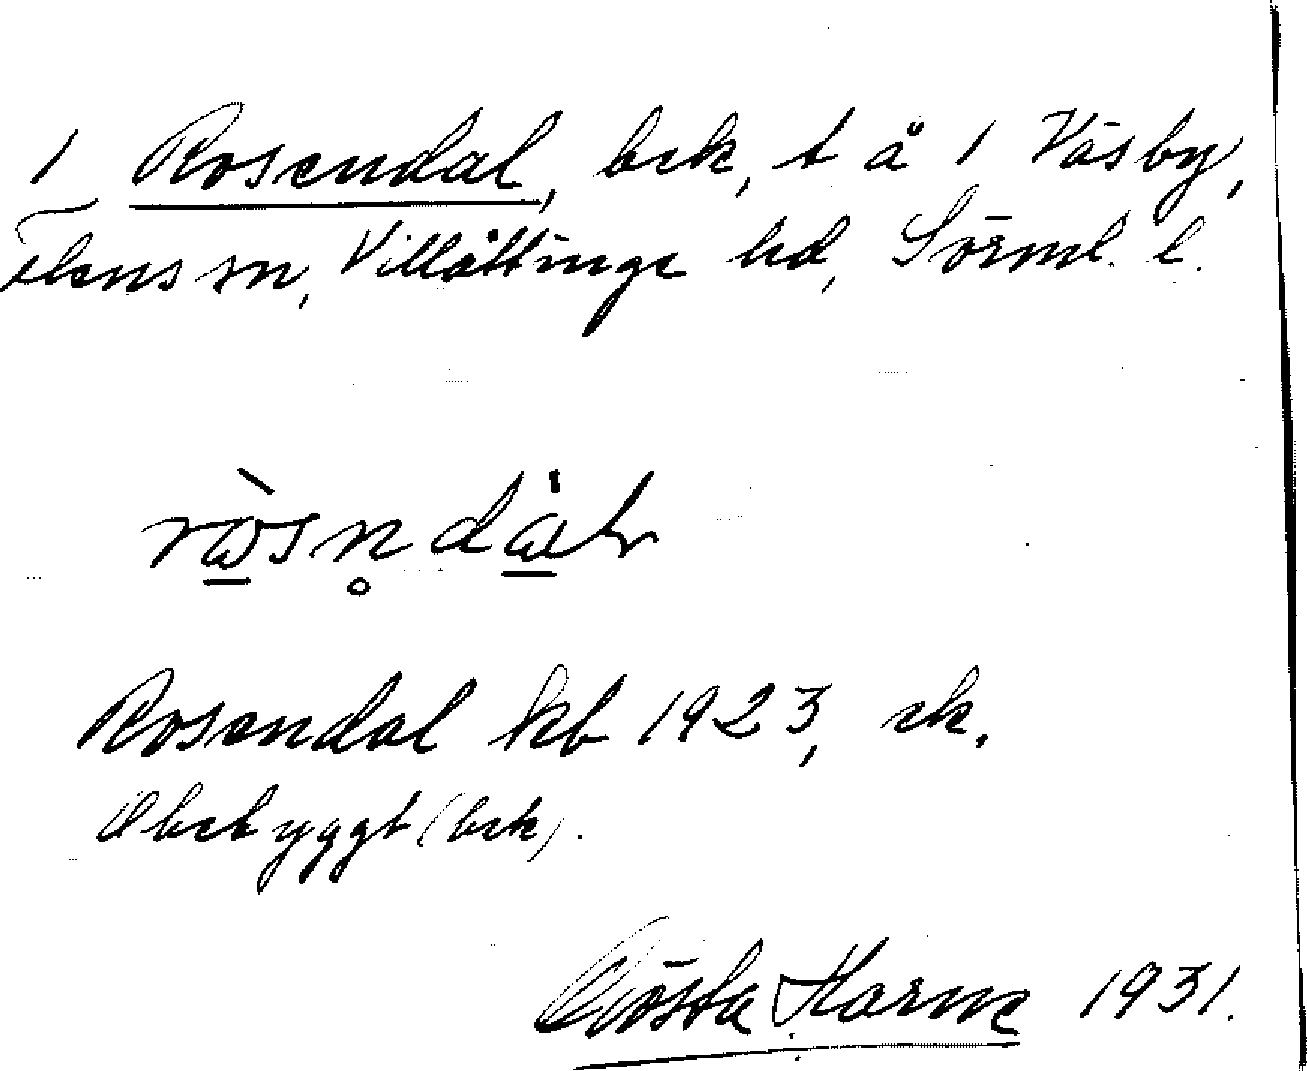 1 Rosendal, bek, t å 1 Väsby,
Flens sn, Villåttinge hd, Sörml. l.
Rosendal kb 1923, ek.
Obebyggt (bek).
Gösta Karne 1931.